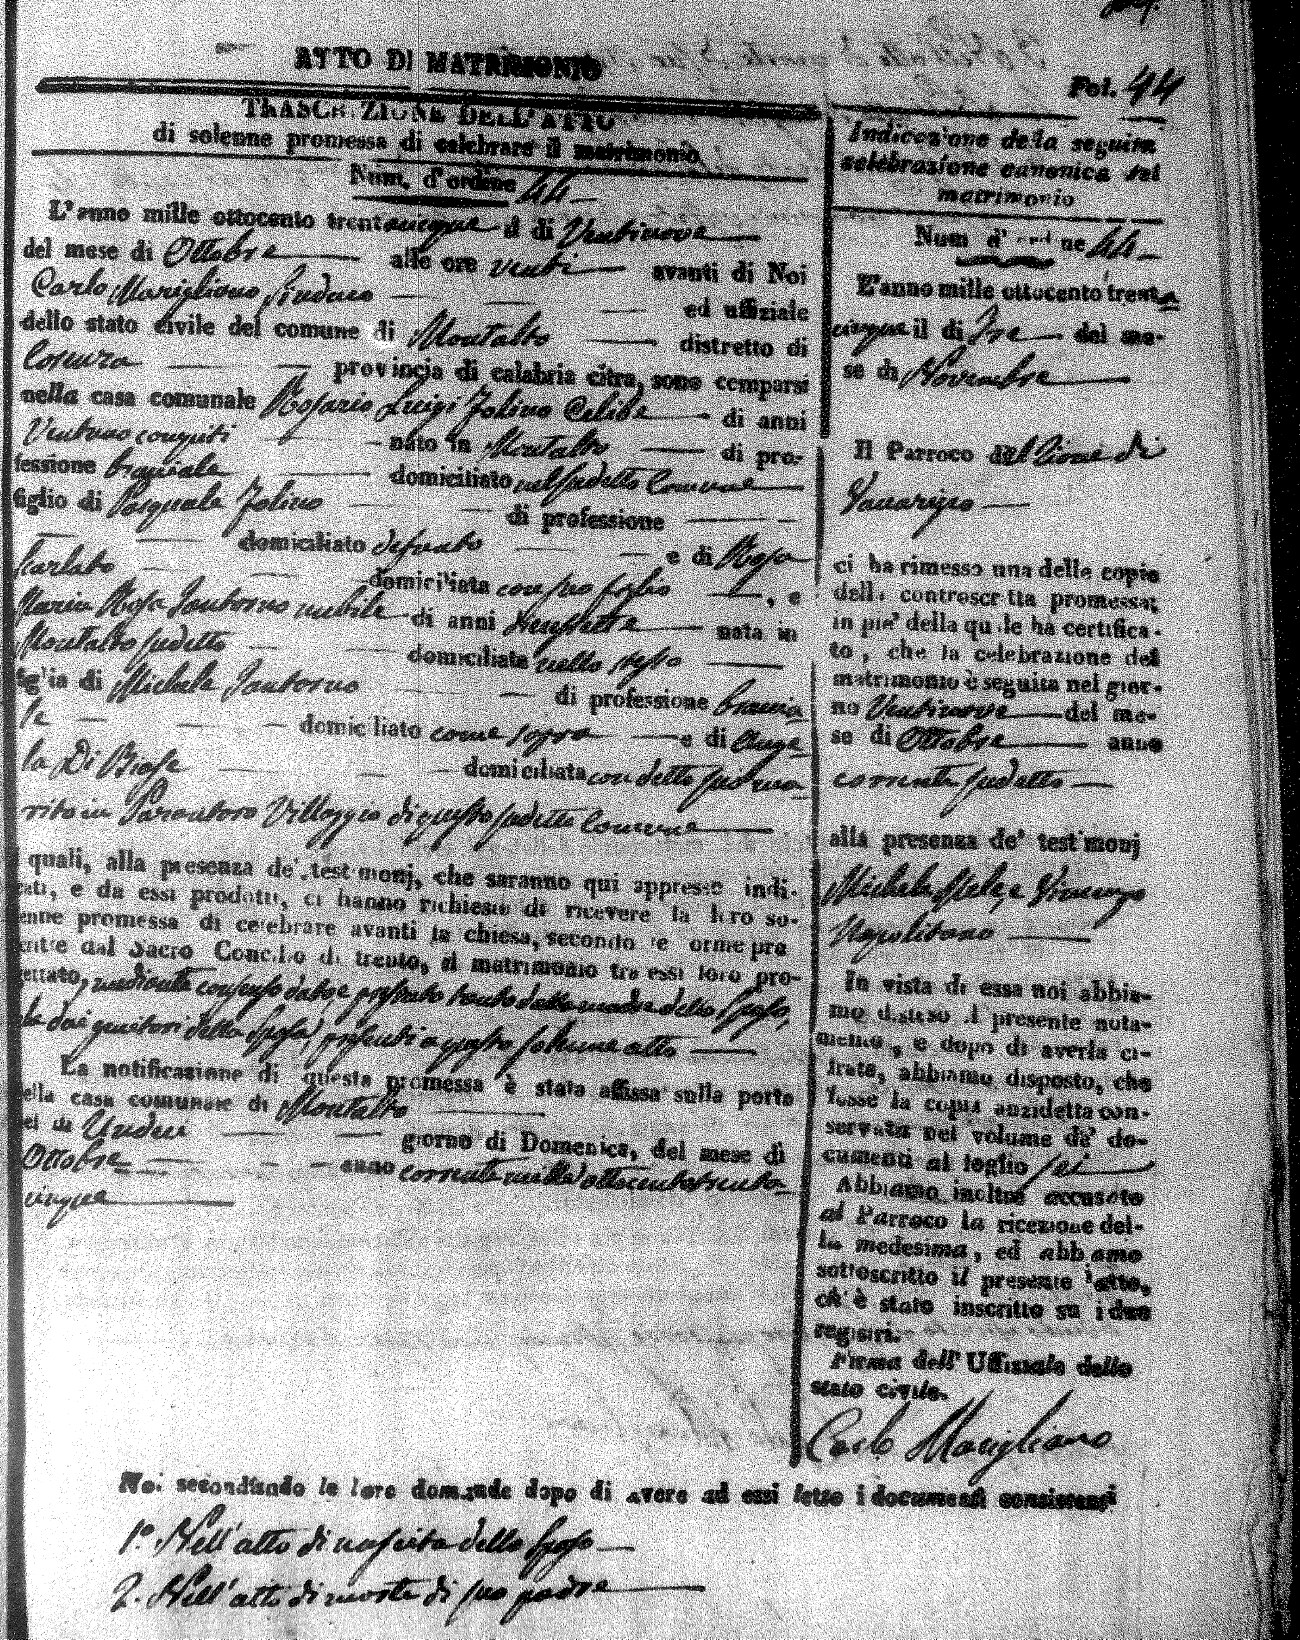 ATTO DI MATRIMONIO
Fol. 44
TRASCRIZIONE DELL'ATTO
di solenne promessa di celebrare il matrimonio
Num. d'ordine 44
L'anno mille ottocento trentacinque il di Ventinove
del mese di Ottobre alle ore venti avanti di Noi
Carlo Marigliano Sindaco ed uffiziale
dello stato civile del comune di Montalto distretto di
Cosenza provincia di calabria citra, sono comparsi
nella casa comunale Rosario Luigi Folino Celibe di anni
Ventuno compiti nato in Montalto di pro-
fessione bracciale domiciliato nel sudetto Comune
figlio di Pasquale Folino di professione
domiciliato defunto e di Rosa
Scarlato domiciliata con suo figlio, e
Maria Rosa Santorno nubile di anni nata in
Montalto sudetto domiciliata nello stesso
figlia di Michele Santorno di professione braccia
le domiciliato come sopra e di Ange
la Di Biase domiciliata con detto suo ma
rito in Parantoro Villaggio di questo sudetto Comune
quali, alla presenza de' testimonj, che saranno qui appresso indi-
cati, e da essi prodotti, ci hanno richiesto di ricevere la loro so-
lenne promessa di celebrare avanti la chiesa, secondo le forme pre
scritte dal Sacro Concilio di trento, il matrimonio tra essi loro pro-
gettato, mediante consenso dato e prestato tanto dalla madre dello Sposo,
che dai genitori della Sposa, presenti a questo solenne atto
La notificazione di questa promessa è stata affissa sulla porta
della casa comunale di Montalto
nel di Undeci giorno di Domenica, del mese di
Ottobre anno corrente mille ottocento trenta
cinque
Indicazione della seguita
celebrazione canonica del
matrimonio
Num d'ordine 44
L'anno mille ottocento trenta
cinque il di Tre del me-
se di Novembre
Il Parroco
ci ha rimesso una delle copie
della controscritta promessa;
in piè della quale ha certifica-
to, che la celebrazione del
matrimonio è seguita nel gior-
no Ventinove del me-
se di Ottobre anno
corrente sudetto
alla presenza de' testimonj
Michele e Vincenzo
Napolitano
In vista di essa noi abbia-
mo disteso il presente nota-
mento, e dopo di averla ci-
frata, abbiamo disposto, che
fosse la copia anzidetta con-
servata nel volume de' do-
cumenti al foglio sei
Abbiamo inoltre accusato
al Parroco la ricezione del-
la medesima, ed abbiamo
sottoscritto il presente atto,
ch'è stato inscritto su i due
registri.
Firma dell'Uffiziale dello
stato civile.
Carlo Marigliano
Noi secondando le loro domande dopo di avere ad essi letto i documenti consistenti
1.° Nell'atto di nascita dello Sposo
2. Nell'atto di morte di suo padre